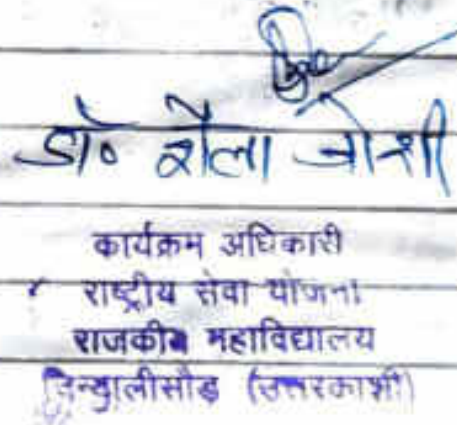 डॉ० शैला जोशी
कार्यक्रम अधिकारी
राष्ट्रीय सेवा योजना
राजकीय महाविद्यालय
चिन्यालीसौड़ (उत्तरकाशी)